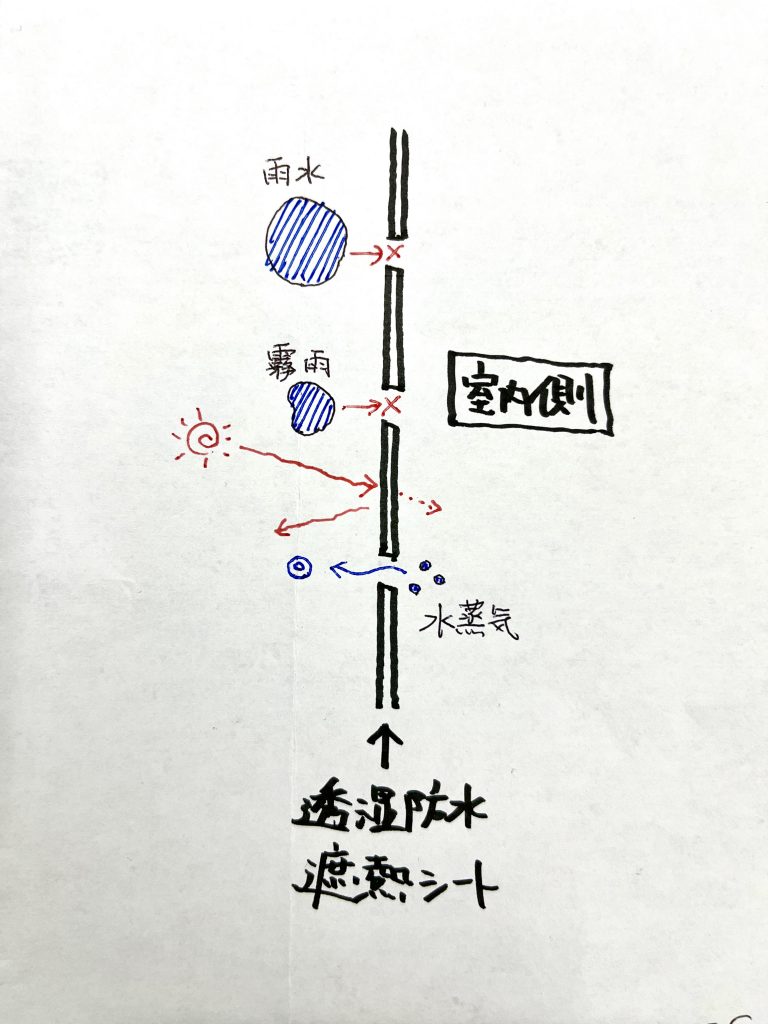 雨水
霧雨
室内側
水蒸気
透湿防水
遮熱シート